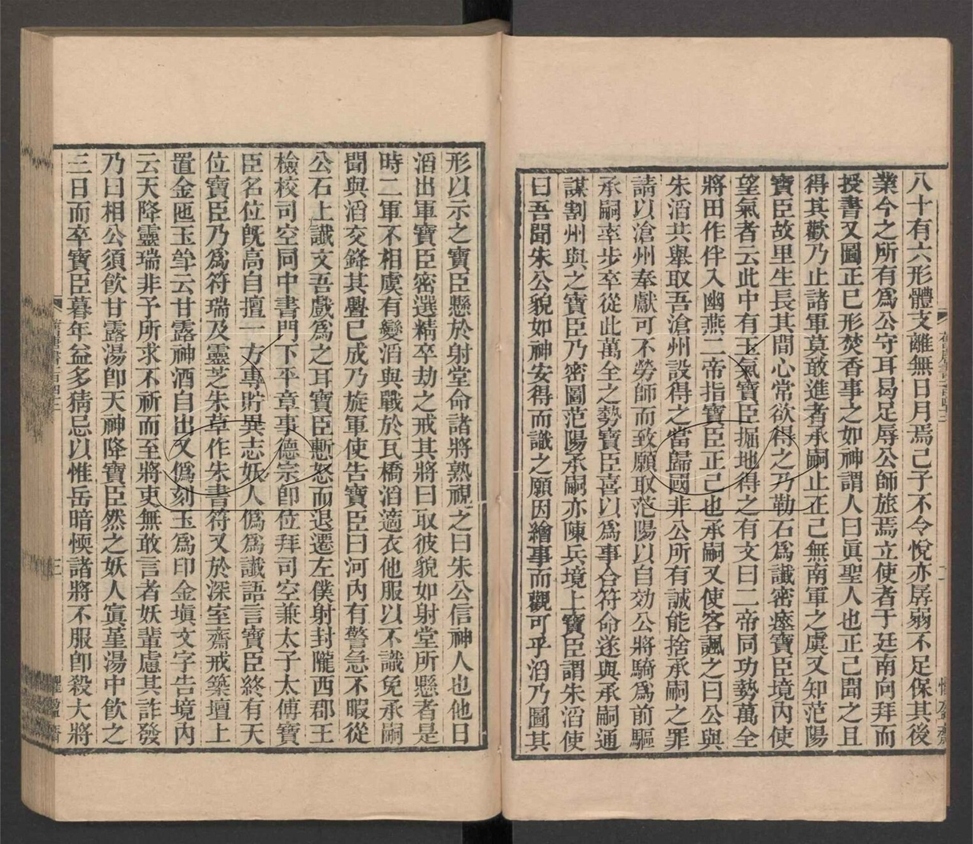 八十有六形體支離無日月焉己子不令悅亦孱弱不足保其後
業今之所有爲公守耳曷足辱公師旅焉立使者于廷南向拜而
授書又圖正已形焚香事之如神謂人曰眞聖人也正己聞之且
得其歡乃止諸軍莫敢進者承嗣止正己無南軍之虞又知范陽
寶臣故里生長其間心常欲得之乃勒石爲讖密瘞寶臣境內使
望氣者云此中有玉氣寶臣掘地得之有文曰二帝同功勢萬全
將田作伴入幽燕二帝指寶臣正己也承嗣又使客諷之曰公與
朱滔共舉取吾滄州設得之當歸國非公所有誠能捨承嗣之罪
請以滄州奉獻可不勞師而致願取范陽以自効公將騎爲前驅
承嗣率步卒從此萬全之勢寶臣喜以爲事合符命遂與承嗣通
謀割州與之寶臣乃密圖范陽承嗣亦陳兵境上寶臣謂朱滔使
曰吾聞朱公貌如神安得而識之願因繪事而觀可乎滔乃圖其
形以示之寶臣懸於射堂命諸將熟視之曰朱公信神人也他日
滔出軍寶臣密選精卒劫之戒其將曰取彼貌如射堂所懸者是
時二軍不相虞有變滔與戰於瓦橋滔適衣他服以不識免承嗣
聞與滔交鋒其釁已成乃旋軍使告寶臣曰河內有警急不暇從
公石上讖文吾戲爲之耳寶臣慙怒而退遷左僕射封隴西郡王
檢校司空同中書門下平章事德宗卽位拜司空兼太子太傅寶
臣名位旣高自擅一方專貯異志妖人僞爲讖語言寶臣終有天
位寶臣乃爲符瑞及靈芝朱草作朱書符又於深室齋戒築壇上
置金匜玉斝云甘露神酒自出又僞刻玉爲印金塡文字告境內
云天降靈瑞非予所求不祈而至將吏無敢言者妖輩慮其詐發
乃曰相公須飮甘露湯卽天神降寶臣然之妖人寘堇湯中飮之
三日而卒寶臣暮年益多猜忌以惟岳暗愞諸將不服卽殺大將